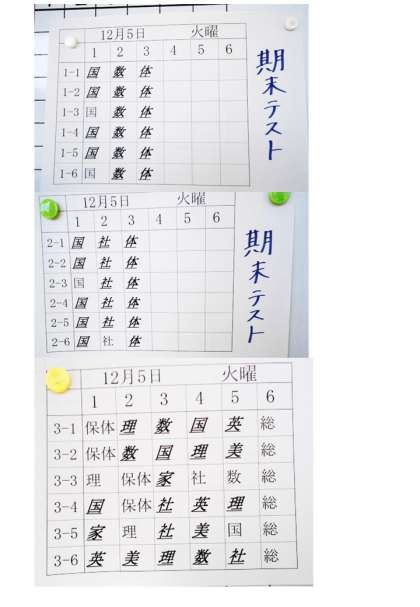 12月5日 火曜
1 2 3 4 5 6
1-1 国 数 体
1-2 国 数 体
1-3 国 数 体
1-4 国 数 体
1-5 国 数 体
1-6 国 数 体
期末テスト
12月5日 火曜
1 2 3 4 5 6
2-1 国 社 体
2-2 国 社 体
2-3 国 社 体
2-4 国 社 体
2-5 国 社 体
2-6 国 社 体
期末テスト
12月5日 火曜
1 2 3 4 5 6
3-1 保体 理 数 国 英 総
3-2 保体 数 国 理 美 総
3-3 理 保体 家 社 数 総
3-4 国 保体 社 英 理 総
3-5 家 理 社 美 国 総
3-6 英 美 理 数 社 総